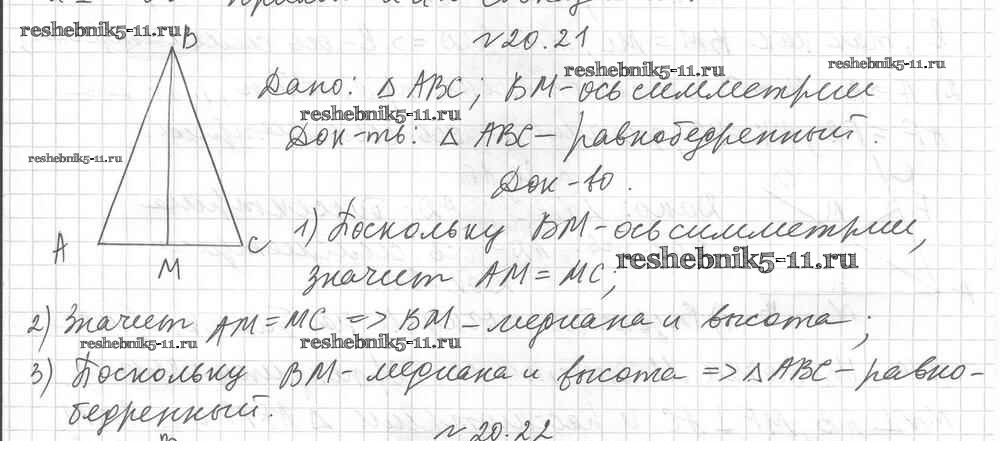 reshebnik5-11.ru
B
№20.21
reshebnik5-11.ru
reshebnik5-11.ru
Дано: △ ABC; BM-ось симметрии
reshebnik5-11.ru
Док-ть: △ ABC- равнобедренный.
reshebnik5-11.ru
Док-во.
1) Поскольку BM-ось симметрии,
A
C
M
значит AM=MC;
reshebnik5-11.ru
2) Значит AM=MC => BM-медиана и высота;
reshebnik5-11.ru
reshebnik5-11.ru
3) Поскольку BM-медиана и высота => △ ABC-равно-
бедренный.
№20.22